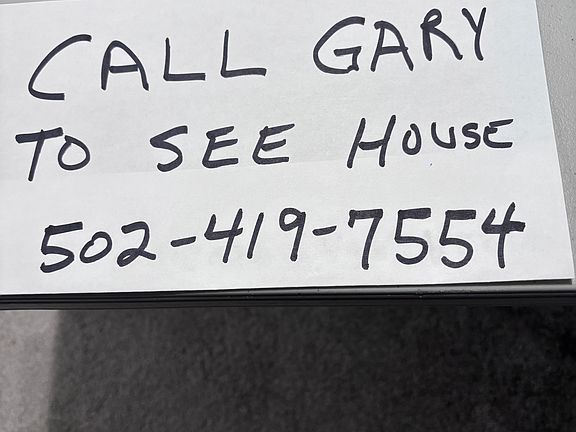 CALL GARY
TO SEE HOUSE
502-419-7554